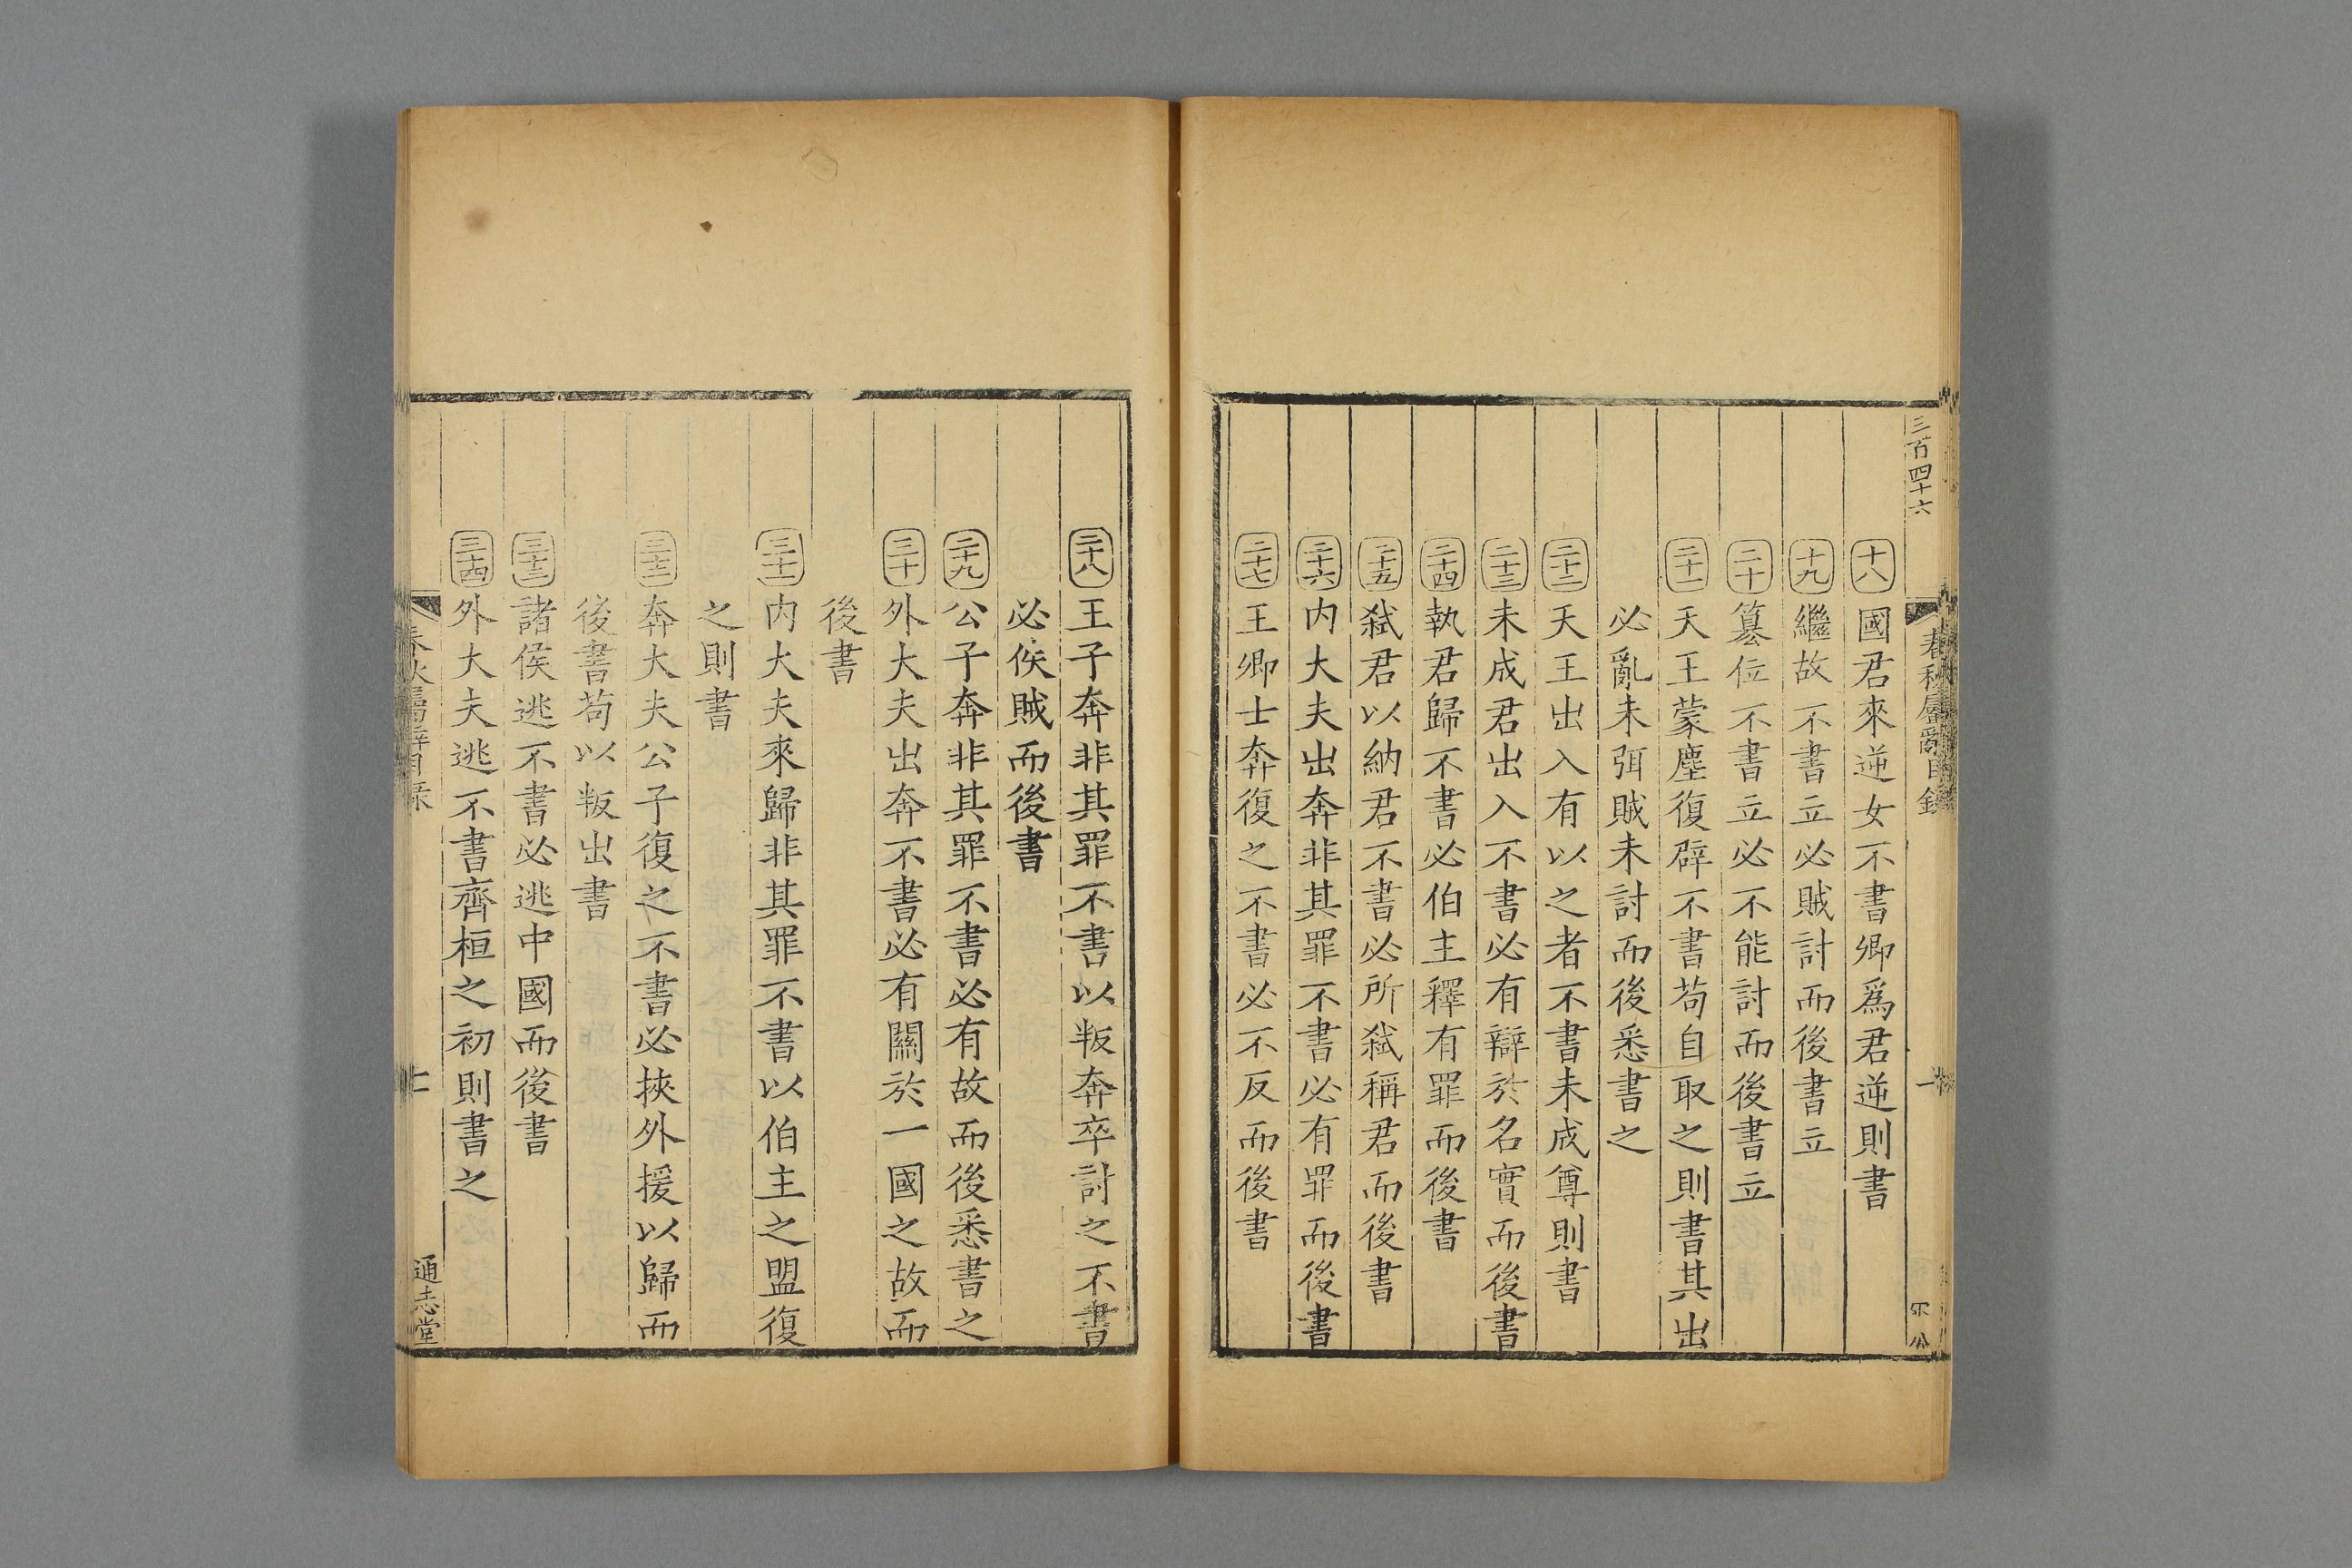 三百四十六
春秋屬辭目錄
一
十八國君來逆女不書卿爲君逆則書
十九繼故不書立必賊討而後書立
二十簒位不書立必不能討而後書立
二十一天王蒙塵復辟不書茍自取之則書其出
必亂未弭賊未討而後悉書之
二十二天王出入有以之者不書未成尊則書
二十三未成君出入不書必有辯於名實而後書
二十四執君歸不書必伯主釋有罪而後書
二十五弑君以納君不書必所弑稱君而後書
二十六内大夫出奔非其罪不書必有罪而後書
二十七王卿士奔復之不書必不反而後書
二十八王子奔非其罪不書以叛奔卒討之不書
必俟賊而後書
二十九公子奔非其罪不書必有故而後悉書之
三十外大夫出奔不書必有關於一國之故而
後書
三十一内大夫來歸非其罪不書以伯主之盟復
之則書
三十二奔大夫公子復之不書必挾外援以歸而
後書茍以叛出書
三十三諸侯逃不書必逃中國而後書
三十四外大夫逃不書齊桓之初則書之
春秋屬辭目錄
通志堂